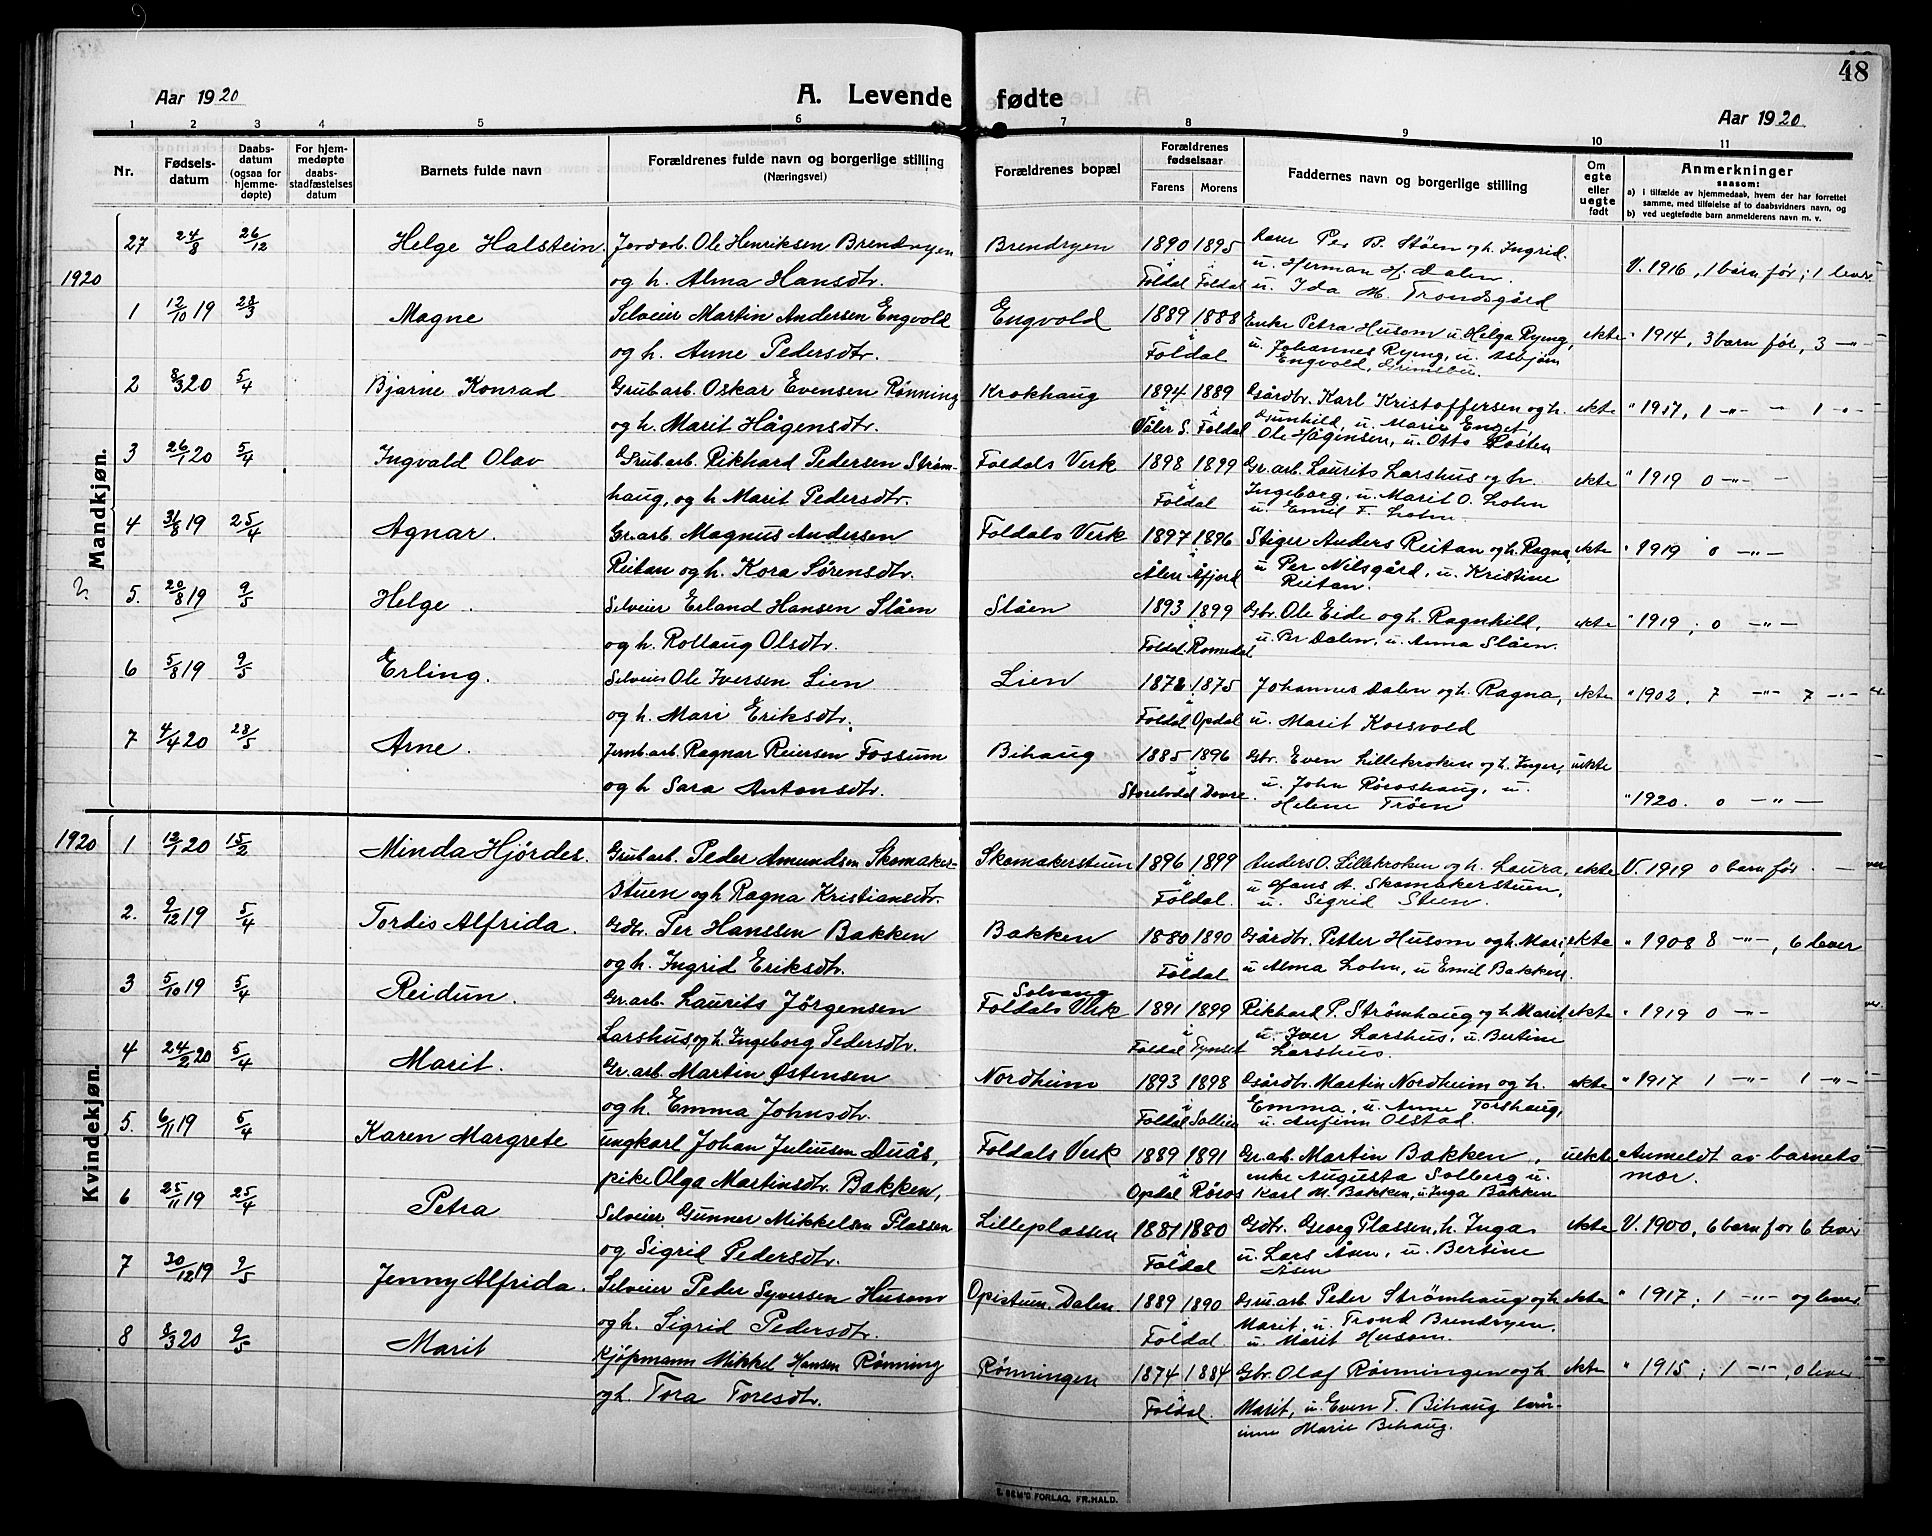 48
Aar 1920
A. Levende fødte
Aar 1920
1 2 3 4 5 6 7 8 9 10 11
Nr.
Fødsels-
datum
Daabs-
datum
(ogsaa for
hjemme-
døpte)
For hjem-
medøpte
daabs-
stadfæstelses
datum
Barnets fulde navn
Forældrenes fulde navn og borgerlige stilling
(Næringsvei)
Forældrenes bopæl
Forældrenes
fødselsaar
Farens Morens
Faddernes navn og borgerlige stilling
Om
egte
eller
uegte
født
Anmerkninger
saasom:
a) i tilfælde av hjemmedaab, hvem der har forrettet
samme, med tilføielse af to daabsvidners navn, og
b) ved uegtefødte barn anmelderens navn m. v.
Mandkjøn.
27 24/8 26/12 Helge Halstein. Jordarb. Ole Henriksen Brendryen Brendryen 1890 1895 Per P. Støen og h. Ingrid. V. 1916, 1 barn før; 1 lever
1920 og h. Alma Hansdtr. i Foldal i Foldal u. Herman H. Dalen
u. Ida M. Trondsgård
1 12/10 19 28/3 Magne Selveier Martin Andersen Engvold Engvold 1889 1888 Enke Petra Husom u Helga Ryeng, ekte " 1914, 3 barn før, 3 -"-
og h. Anne Pedersdtr. i Foldal u. Johannes Ryeng, u. Asbjørn
Engvold, Grimsbu.
2 8/3 20 5/4 Bjarne Konrad Grubarb. Oskar Evensen Rønning Krokhaug 1894 1889 Gårdbr. Karl Kristoffersen og h. ekte " 1917, 1 -"- " 1 -"-
og h. Marit Hågensdtr. i Våler S. i Foldal Gunhild, u. Marie Enget,
Ole Hågensen, u. Otto Losten
3 26/1 20 5/4 Ingvald Olav Grub.arb. Rikhard Pedersen Strøm- Foldals Verk 1898 1899 Gr.arb. Laurits Larshus og h. ekte " 1919 0 -"- -
haug, og h. Marit Pedersdtr. i Foldal Ingeborg, u. Marit O. Lohn
u. Emil F. Lohn.
4 31/8 19 25/4 Agnar. Gr.arb. Magnus Andersen Foldals Verk 1897 1896 Stiger Anders Reitan og h. Ragna, ekte " 1919 0 -"-
Reitan og h. Kora Sørensdtr. Ålen Åfjord u Per Nilsgård, u. Kristine
Reitan.
5. 20/8 19 9/5 Helge. Selveier Erland Hansen Slåen Slåen 1893 1899 Gbr. Ole Eide og h. Ragnhild, ekte " 1919; 0 -"-
og h. Rollaug Olsdtr. Foldal. Romedal u. Per Dalen, u. Anna Slåen.
6 5/8 19 9/5 Erling. Selveier Ole Iversen Lien Lien 1872 1875 Johannes Dalen og h. Ragna, ekte " 1902, 7 -"- 7 -"-
og h. Mari Eriksdtr. Foldal Opdal u. Marit Korsvold
7 4/4 20 28/5 Arne. Jernb.arb. Ragnar Reiersen Fossum Bihaug 1885 1896 Gbr. Even Lillekroken og h. Inger, uekte
og h Sara Antonsdtr. Storelvdal Dovre. u. John Røroshaug, u. " 1920. 0 -"-
Helene Trøen
Kvindekjøn.
1920 1 12/1 20 15/2 Minda Hjördes. Grubarb. Peder Amundsen Skomaker- Skomakerstuen 1896 1899 Anders O. Lillekroken og h. Laura, ekte V. 1919 0 barn før. -
stuen og h Ragna Kristiansdtr. i Foldal. u Hans A. Skomakerstuen,
u. Sigrid Steen.
2. 9/12 19 5/4 Tordis Alfrida. Gdbr. Per Hanssen Bakken Bakken 1880 1890 Gårdbr. Petter Husom og h. Mari, ekte " 1908 8 -"-, 6 lever
og h. Ingrid Eriksdtr. i Foldal u Alma Lohn, u Emil Bakken.
3 5/10 19 5/4 Reidun. Gr.arb. Laurits Jørgensen Solvang
Foldals Verk 1891 1899 Rikhard P. Strømhaug og h Marit, ekte " 1919 0 -"-
Larshus og h. Ingeborg Pedersdtr. Foldal Tynset u. Iver Larshus, u. Bertine
Larshus.
4 24/2 20 5/4 Marit. Gr.arb. Martin Østensen Nordheim 1893 1898 Gårdbr. Martin Nordheim og h. ekte " 1917 1 -"- 1 -"-
og h. Emma Johnsdtr. Foldal Sollien Emma, u. Anne Torshaug,
u. Anfinn Olstad.
5. 6/11 19 5/4 Karen Margrete ungkarl Johan Juliusen Duås, Foldals Verk 1889 1891 Gr.arb. Martin Bakken, uekte Anmeldt av barnets
pike Olga Martinsdtr. Bakken, Opdal Røros enke Augusta Solberg u. mor.
Karl M. Bakken, u. Inga Bakken
6 25/11 19 25/4 Petra Selveier Gunner Mikkelsen Plassen Lilleplassen 1881 1880 Gdbr. Georg Plassen, h. Inga ekte V. 1900, 6 barn før 6 lever
og Sigrid Pedersdtr. i Foldal u. Lars Åsen, u. Bertine
Åsen
7 30/12 19 9/5 Jenny Alfrida. Selveier Peder Syversen Husom Opistuen, Dalen 1889 1890 Gru.arb. Peder Strømhaug og h ekte " 1917; 1 -"- og lever.
og h. Sigrid Pedersdtr. i Foldal. Marit, u. Trond Brendryen,
u. Marit Husom.
8 8/3 20 9/5 Marit Kjøpmann Mikkel Hansen Rønning Rønningen 1874 1884 Gbr. Olaf Rønningen og h. ekte " 1915; 1 -"-, 0 lever
og h. Tora Toresdtr. i Foldal. Marit, u. Even T. Bihaug lærer-
inne Marie Bihaug.
E. SEM'S FORLAG, FR.HALD.